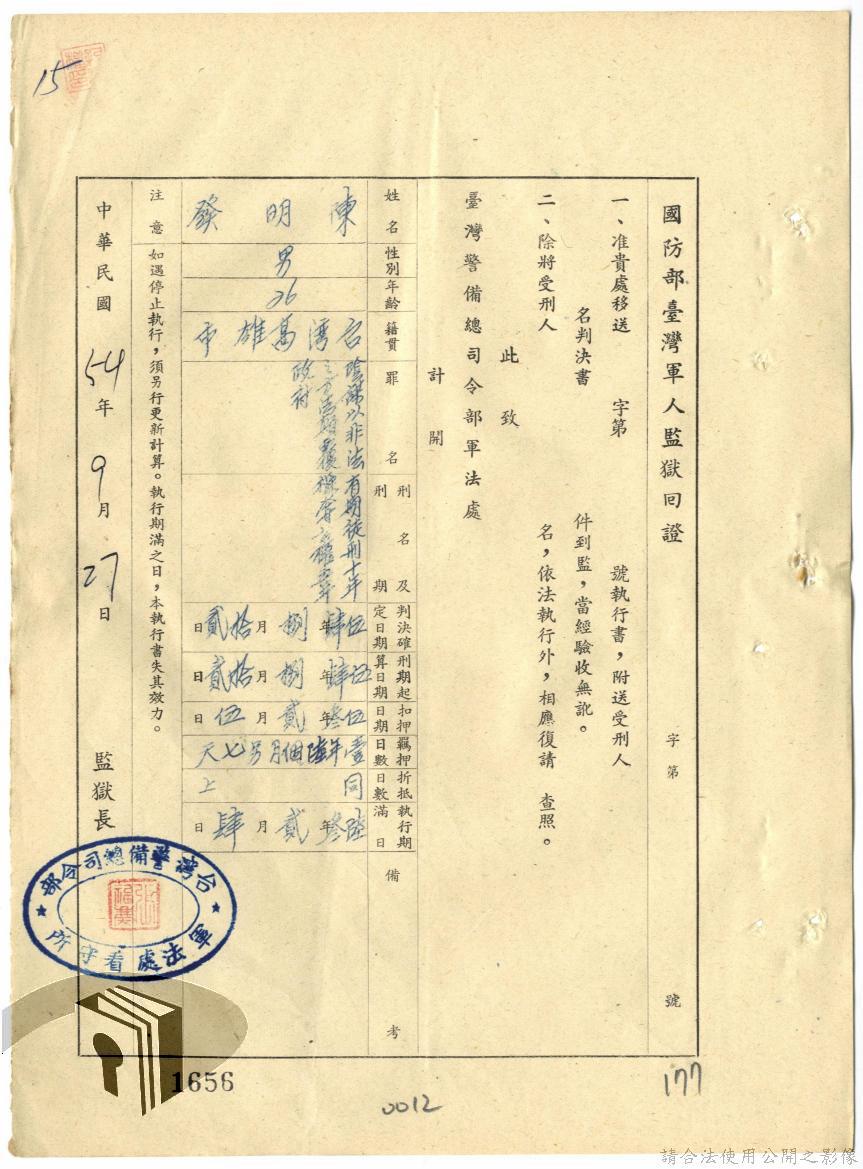 15
國防部臺灣軍人監獄回證　　字第　　號
一、准貴處移送　　字第　　號執行書，附送受刑人
名判決書　　件到監，當經驗收無訛。
二、除將受刑人　　名，依法執行外，相應復請　查照。
此致
臺灣警備總司令部軍法處
計開
姓名
陳明發
性別
男
年齡
26
籍貫
台灣高雄市
罪名
陰謀以非法之方法顛覆政府
刑名及刑期
有期徒刑十年褫奪公權五年
判決確定日期
伍肆年捌月拾貳日
刑期起算日期
伍肆年捌月拾貳日
扣押日期
伍叁年貳月伍日
羈押日數
壹年陸個月另七天
折抵日數
同上
執行期滿日
陸叁年貳月肆日
備考
注意　如遇停止執行，須另行更新計算。執行期滿之日，本執行書失其效力。
中華民國54年9月27日　監獄長
台灣警備總司令部
軍法處看守所
1656
0012
177
請合法使用公開之影像